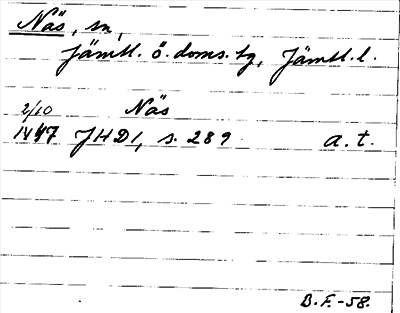 Näs, sn,
Jämtl. ö. doms. tg, Jämtl. l.
2/10 Näs
1447 JHD1, s. 289 a. t.
B. F. -58.